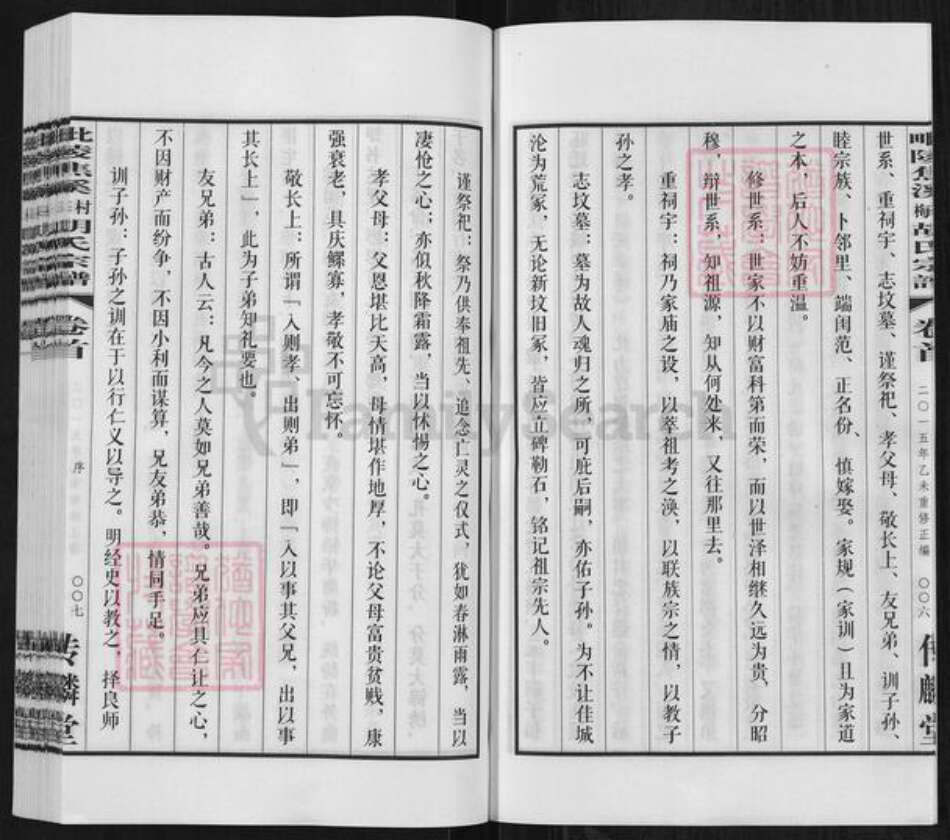 世系、重祠宇、志坟墓、谨祭祀、孝父母、敬长上、友兄弟、训子孙、
睦宗族、卜邻里、端闺范、正名份、慎嫁娶。家规（家训）且为家道
之本，后人不妨重温。
修世系：世家不以财富科第而荣，而以世泽相继久远为贵，分昭
穆，辩世系，知祖源，知从何处来，又往那里去。
重祠宇：祠乃家庙之设，以萃祖考之涣，以联族宗之情，以教子
孙之孝。
志坟墓：墓为故人魂归之所，可庇后嗣，亦佑子孙。为不让佳城
沦为荒冢，无论新坟旧冢，皆应立碑勒石，铭记祖宗先人。
二〇一五年乙未重修正编
〇〇六
谨祭祀：祭乃供奉祖先、追念亡灵之仪式，犹如春淋雨露，当以
凄怆之心；亦似秋降霜露，当以怵惕之心。
孝父母：父恩堪比天高，母情堪作地厚，不论父母富贵贫贱，康
强衰老，具庆鳏寡，孝敬不可忘怀。
敬长上：所谓「入则孝、出则弟」，即「入以事其父兄，出以事
其长上」，此为子弟知礼要也。
友兄弟：古人云：凡今之人莫如兄弟善哉。兄弟应具仁让之心，
不因财产而纷争，不因小利而谋算，兄友弟恭，情同手足。
训子孙：子孙之训在于以行仁义以导之。明经史以教之，择良师
胡氏宗谱
卷首
序
〇〇七
麟堂
FamilySearch